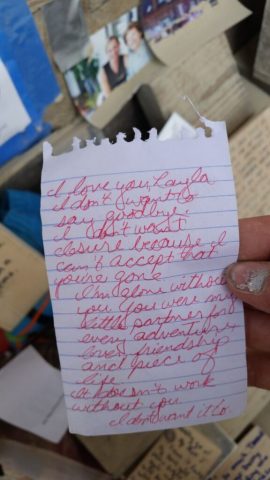 I love you, Layla
I don't want to
say goodbye.
I don't want
closure because I
can't accept that
you're gone
I'm alone without
you. You were my
little partner for
every adventure,
love, friendship
and piece of
life
It doesn't work
without you
I don't want it to